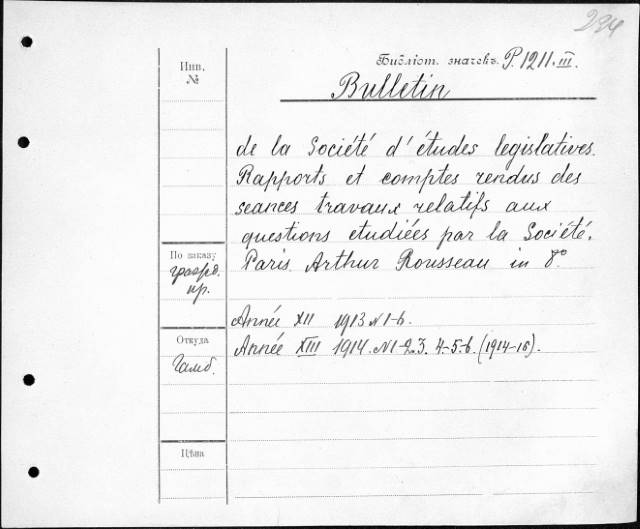 234
Библіот. значекъ P.1211.III.
Инв.
№
Bulletin
de la Société d'études legislatives.
Rapports et comptes rendus des
seances travaux relatifs aux
questions etudiées par la Société.
Paris. Arthur Rousseau in 8°.
По заказу
пр.
Année XII 1913 N 1-6.
Année XIII 1914. N 1-2.3. 4-5-6. (1914-16).
Откуда
Гамб.
Цѣна